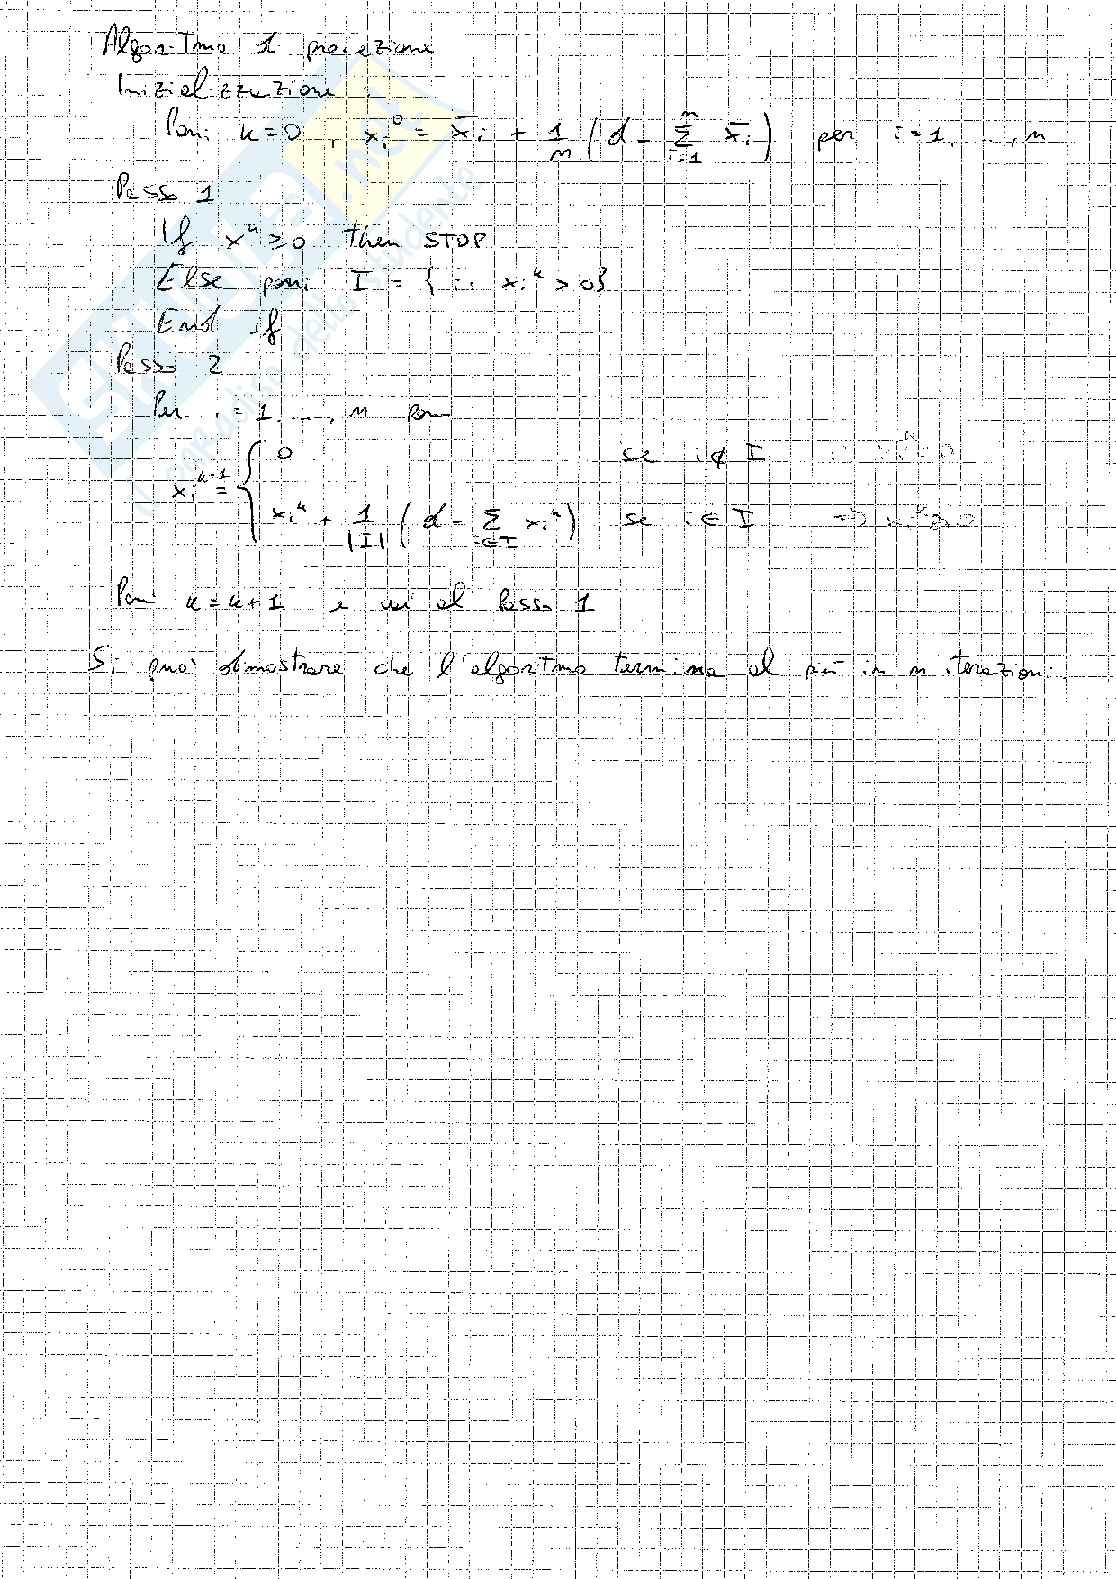 Algoritmo di proiezione
Inizializzazione
Poni k=0, xᵢ⁰ = x̄ᵢ + 1/n (d - Σᵢ₌₁ⁿ x̄ᵢ) per i=1, ..., n
Passo 1
If xᵏ ≥ 0 then STOP
Else poni I = { i : xᵢᵏ > 0}
End if
Passo 2
Per i=1, ..., n poni
xᵢᵏ⁺¹ = { 0 se i ∉ I
xᵢᵏ + 1/|I| (d - Σ_{i∈I} xᵢᵏ) se i ∈ I
Poni k=k+1 e vai al Passo 1
Si può dimostrare che l'algoritmo termina al più in n iterazioni.
SKUOLA.net